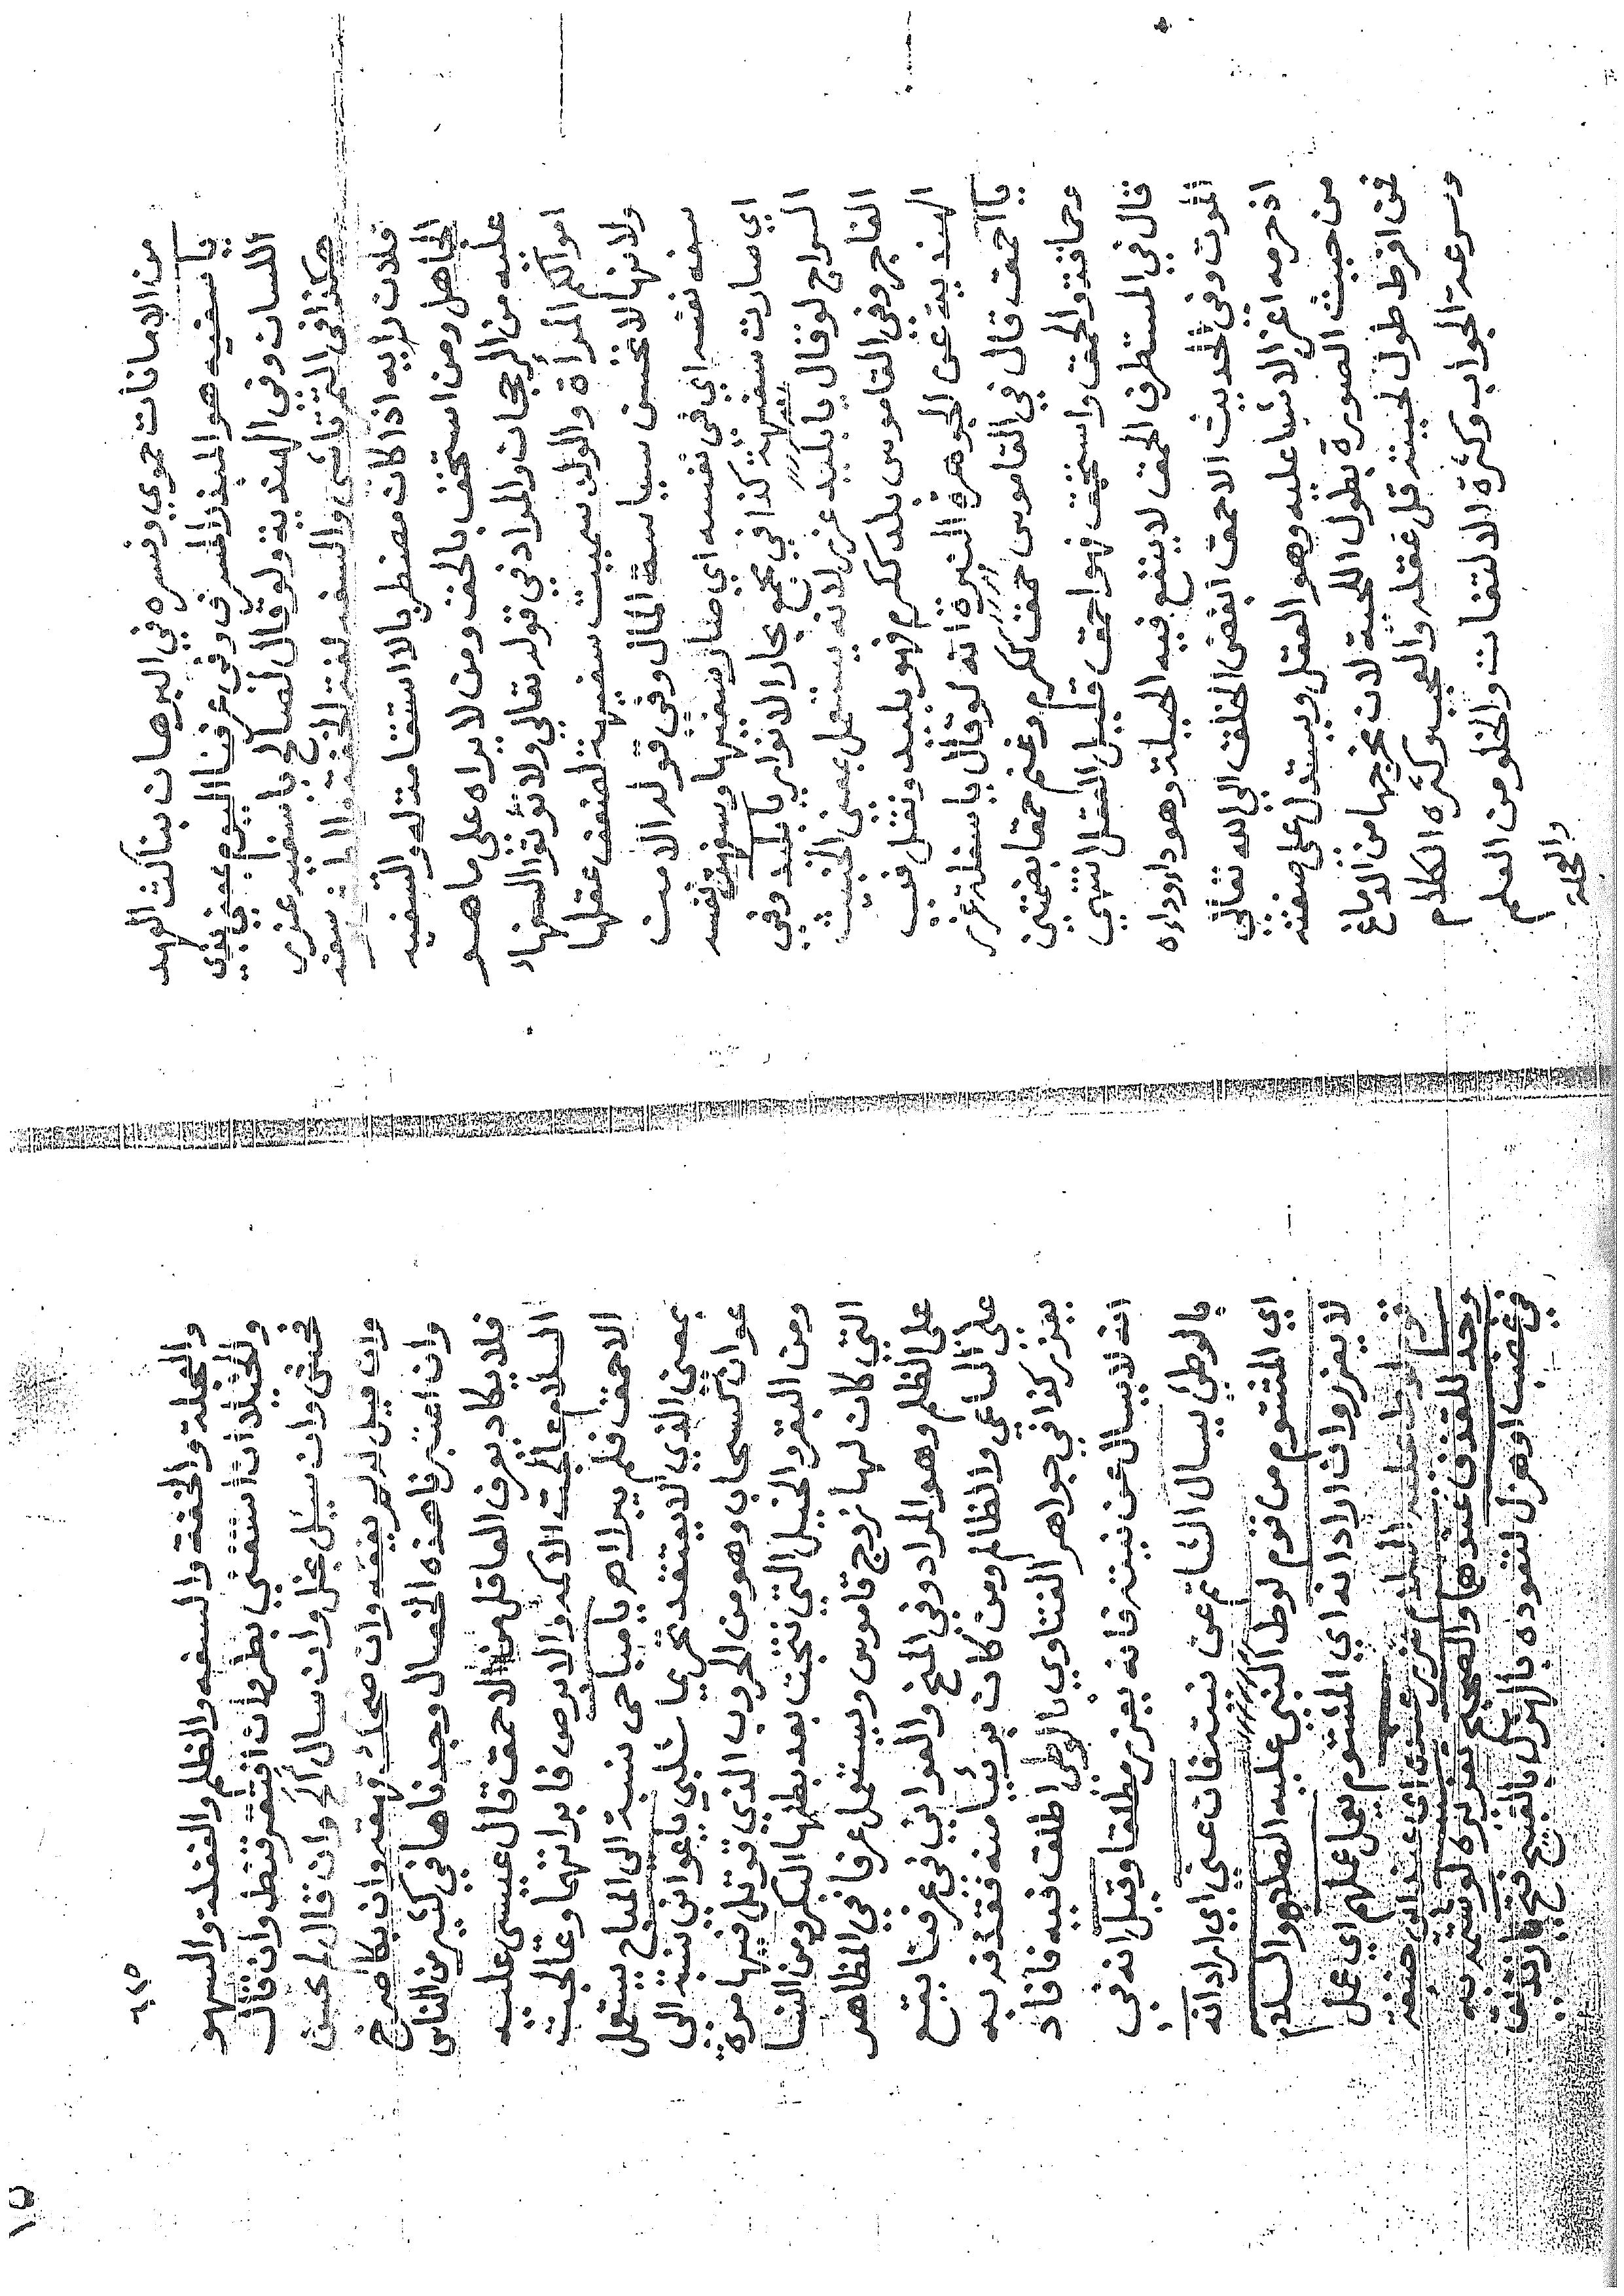 من الامانات حموي وفسره في البرهان بناكث العهد
يا سفيه هو المبذر المسرف وفي عرفنا اليوم بمعني بذي
اللسان وفي الهندية ولو قال لصالح يا سفيه عزر
هكذا في التمرتاشي والسفه لغة الخفة والطيش يقال سفه
فلان رايه اذا كان مضطربا لا استقامة له والسفيه
الجاهل ومن استخف بالحق ومن لا يراه على ما هو
عليه من الرجحان والمراد في قوله تعالي ولا تؤتوا السفهاء
اموالكم المرأة والولد سميت سفيهة لضعف عقلها
ولانها لا تحسن سياسة المال وفي قوله الا من
سفه نفسه اي في نفسه اي صار سفيها وسفهت نفسه
اي صارت سفيهة كذا في مجمع بحار الانوار يا بليد وفي
السراج لو قال يا بليد عزر لانه يستعمل بمعني الخبيث
الفاجر وفي القاموس بلد ككرم فهو بليد ونقل في
الهندية عن الجوهرة النيرة انه لو قال يا سفلة عزر
يا احمق قال في القاموس حمق ككرم وغنم حمقا بضمتين
وحماقة والحمق واستحمق فهو احمق قليل العقل انتهي
قال في المستطرف الحمق لا ينفع فيه الحيلة وهو داء دواءه
الموت وفي الحديث الاحمق ابغض الخلق الي الله تعالي
اذ حرمه اعز الاشيا عليه وهو العقل ويستدل على صفته
من حيث الصورة بطول اللحية لان مخرجها من الدماغ
فمن افرط طول لحيته قل عقله والعجب وكثرة الكلام
وسرعة الجواب وكثرة الالتفات والخلو من العلم
والعجلة
٦٢٥
والعجلة والخفة والسفه والظلم والغفلة والسهو
والخيلاء ان استغني بطر وان افتقر قنط وان قال
فحش وان سئل بخل وان سال الح وان قال لم يحسن
وان قيل له لم يفقه وان ضحك قهقه وان بكا صرخ
وان اعتبرنا هذه الخصال وجدناها في كثير من الناس
فلا يكاد يعرف العاقل من الاحمق قال عيسى عليه
السلام عالجت الاكمه والابرص فابراتهما وعالجت
الاحمق فلم يبرا اهـ يا مباحي نسبة الى المباح يستعمل
بمعني الذي لا يعتقد تحريما شلبي يا عواني نسبة الي
عوان كسحاب وهو من الحروب الذي قوتل فيها مرة
ومن البقر والخيل التي نتجت بعد بطنها البكر ومن النسا
التي كان لها زوج قاموس ويستعمل عرفا في المظاهر
على الظلم وهو المراد وفي المنح والعواني في عرفنا يقع
على الساعي والظالم ومن كان بريئا منه فقذفه به
يعزر كذا في جواهر الفتاوي يا لوطي اطلق فيه فافاد
انه لا يسال عن نيته فانه يعزر مطلقا وقيل انه في
يا لوطي يسال الشاتم عن نيته فان عني اي اراد انه
اي المشتوم من قوم لوط النبي عليه الصلاة والسلام
لا يعزر وان اراد انه اي المشتوم يعمل عملهم اي عمل
قوم لوط عليه السلام عزر عنده اي عند ابي حنيفة
وحد للقذف عندهما والصحيح تعزيره لو شتمه به
في غضب او هزل لتعوده بالهزل بالقبيح فتح